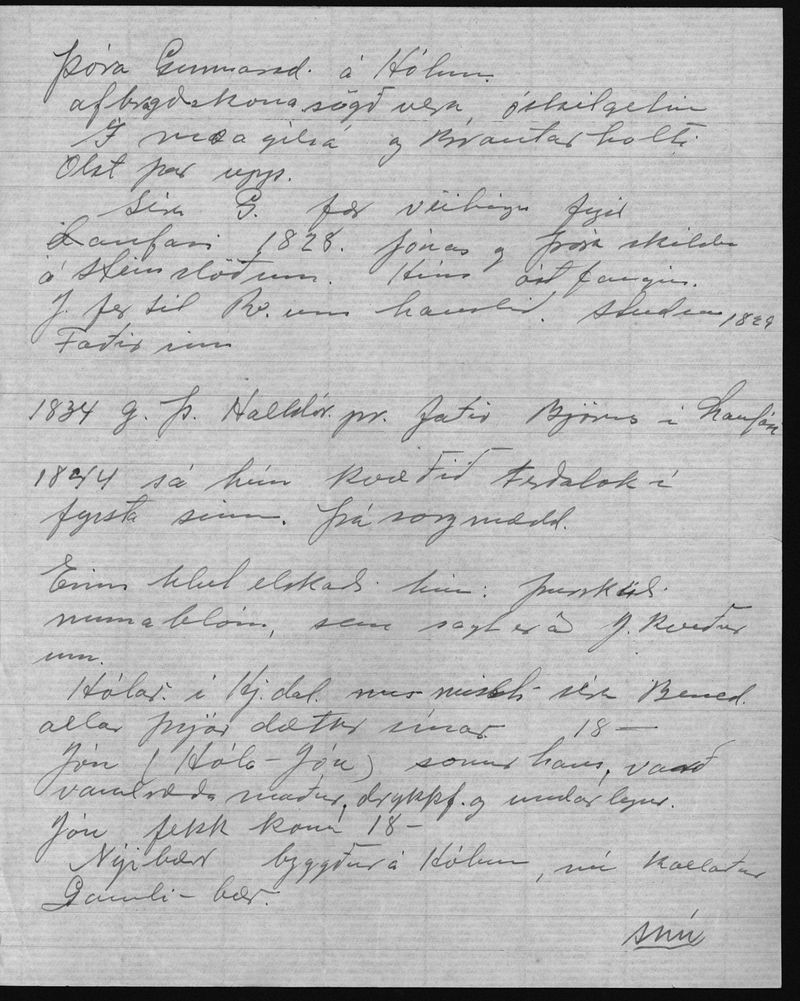 Þóra Gunnarsd. á Hólum.
afbragðskona sögð vera óskilgetin
Í og Brautarholti
Ólst þar upp.
Séra G. fær veitingu fyrir
Laufási 1828. Jónas og Þóra skildu
á Steinsstöðum. Hún ástfangin.
J. fer til Rv. um haustið. Student 1829
Faðir
1834 g. Þ. Halldór. pr. faðir Björns í Laufási
1844 sá hún kvæðið Ferðalok í
fyrsta sinn. Þá sorgmædd.
Einn hlut elskaði hún: þurrkuð
blóm, sem sagt er að J. kveður
um.
Hólar í Hj.dal. misti séra Bened.
allar þrjár dætur sínar 18—
Jón (Hóla-Jón) sonur hans, varð
vandræða maður, drykkf. og undarlegur.
Jón fekk konu 18—
Nýibær byggður á Hólum, nú kallaður
Gamli-bær.
snú